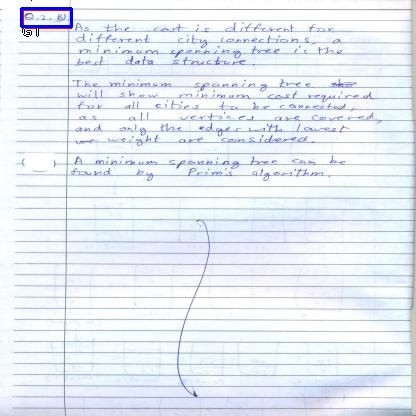 Q.2. B)
G1
As the cost is different for
different city connections, a
minimum spanning tree is the
best data structure.
The minimum spanning tree
will show minimum cost required
for all cities to be connected,
as all vertices are covered,
and only the edges with lowest
weight are considered.
A minimum spanning tree can be
found by Prim's algorithm.